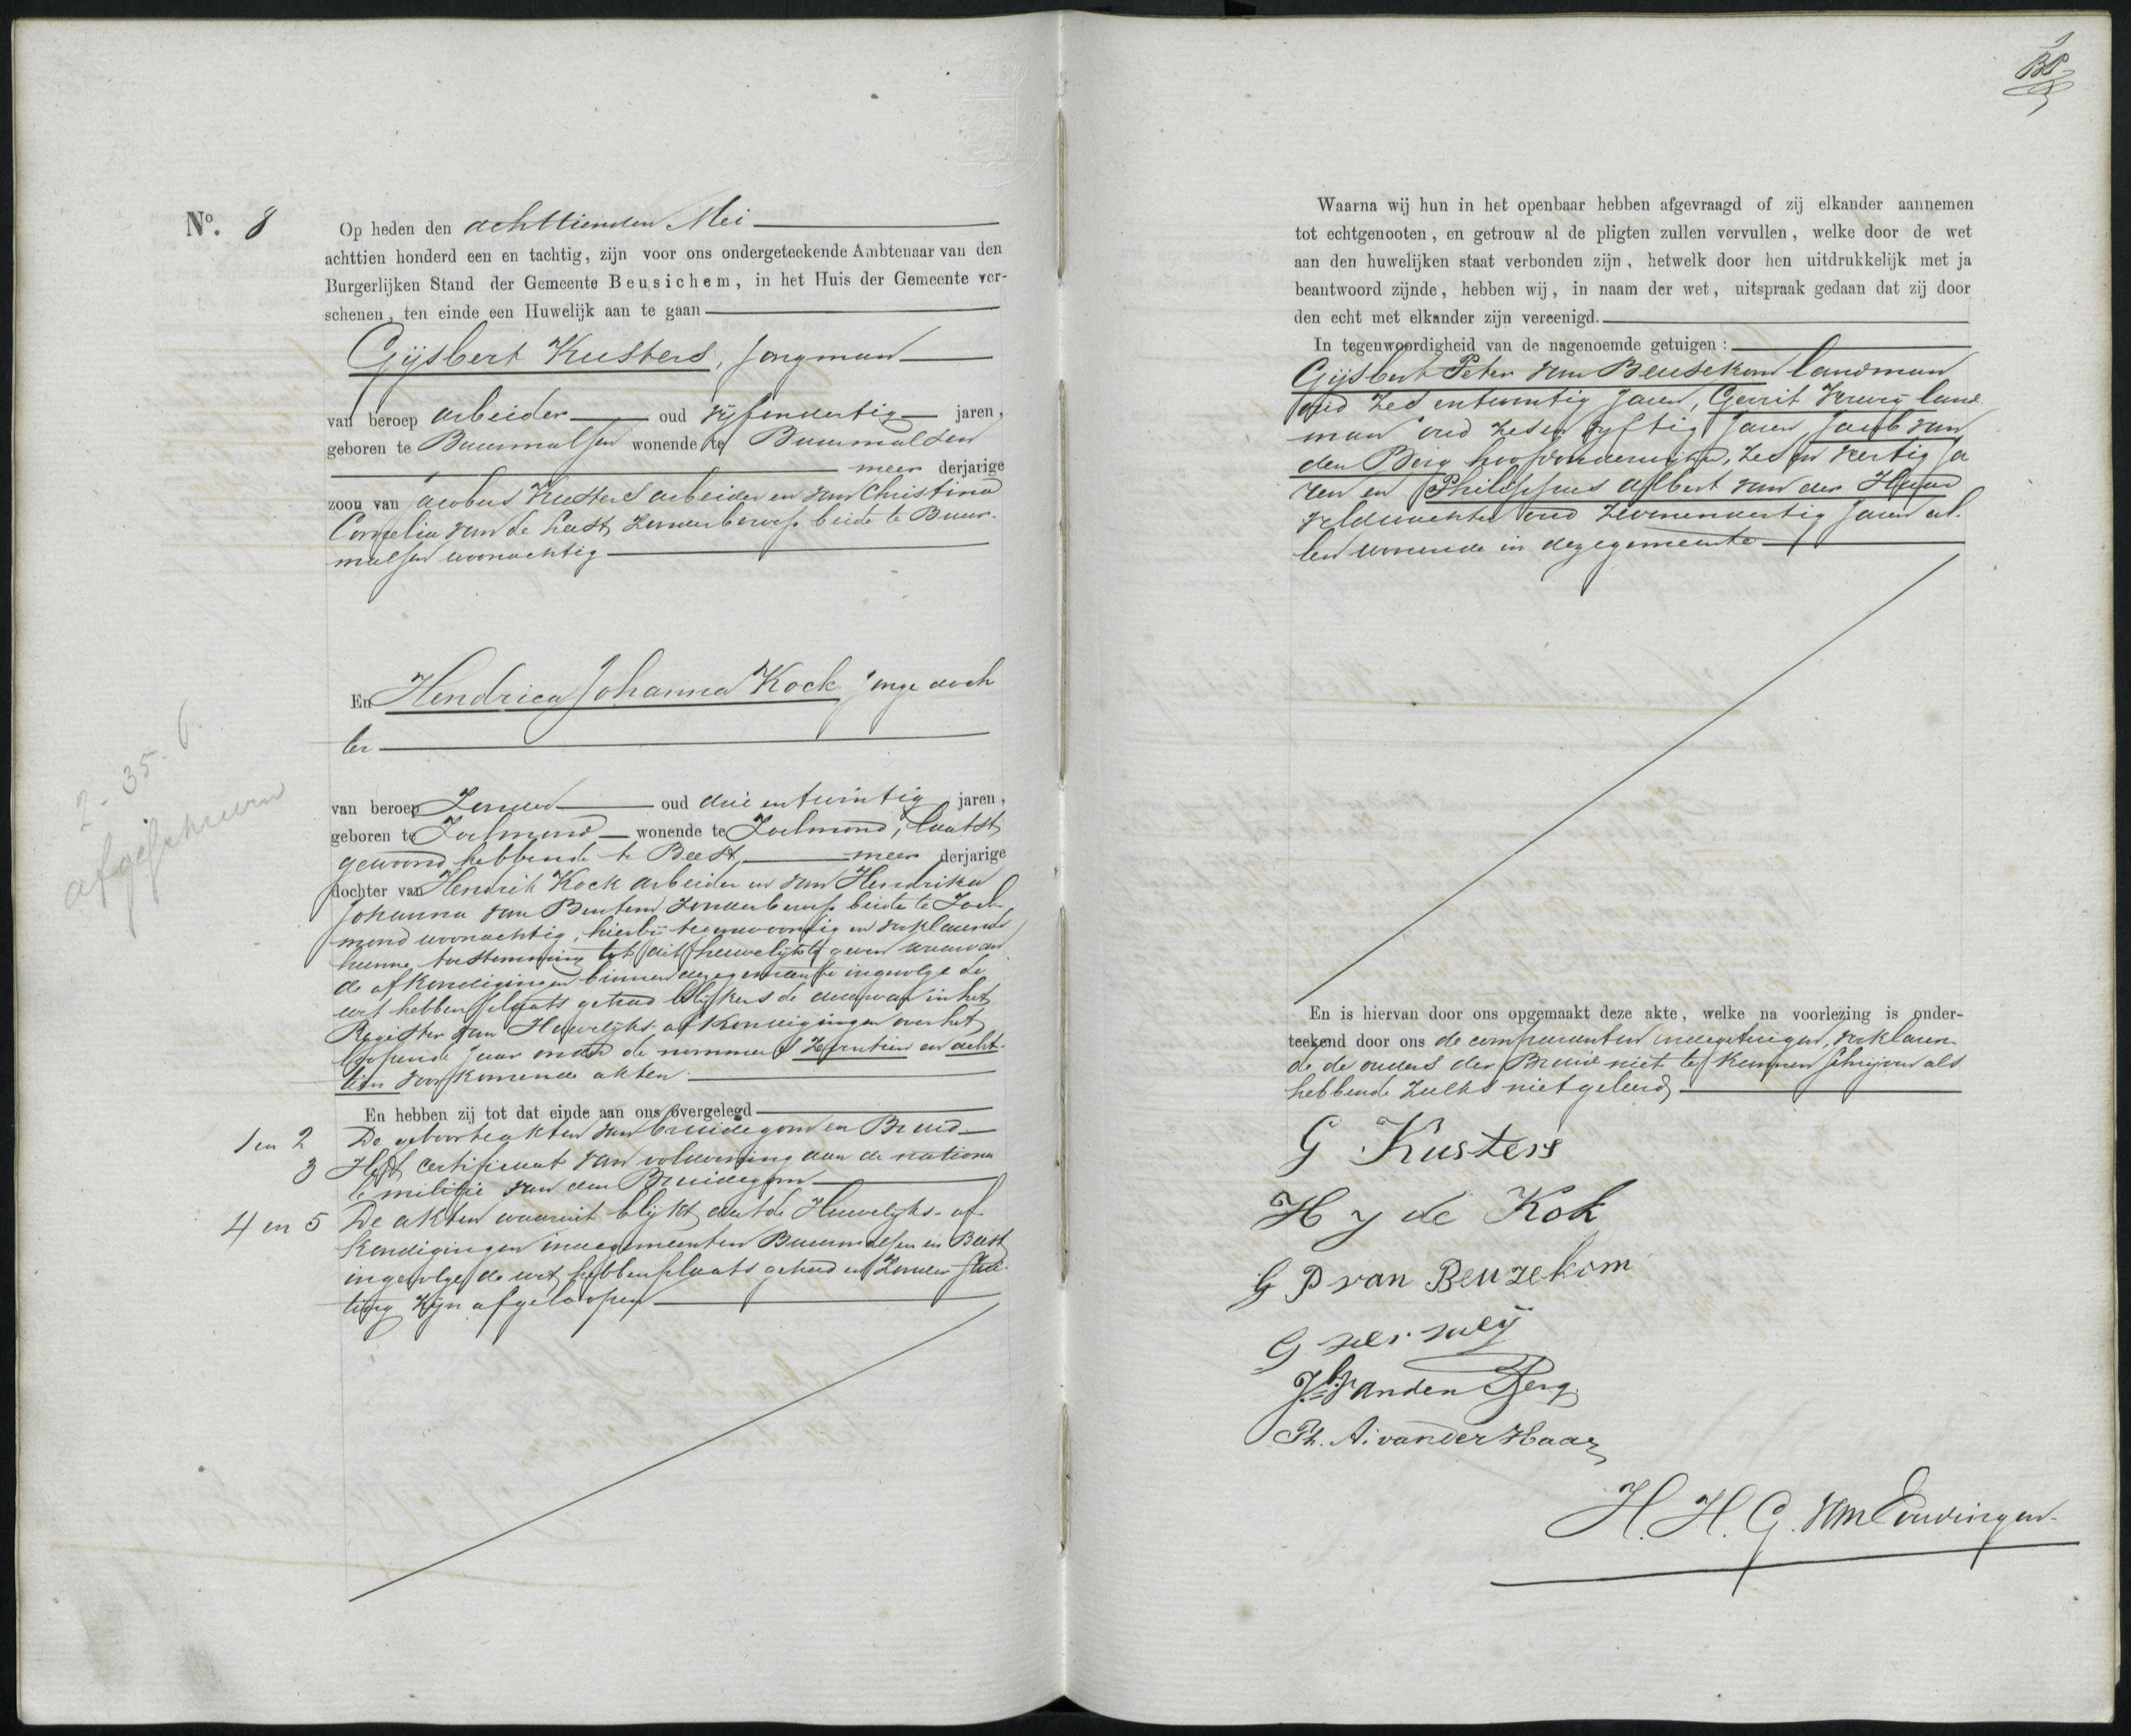 No. 8
Op heden den achttienden Mei
achttien honderd een en tachtig, zijn voor ons ondergeteekende Ambtenaar van den
Burgerlijken Stand der Gemeente Beusichem, in het Huis der Gemeente ver-
schenen, ten einde een Huwelijk aan te gaan
Gijsbert Kusters, Jongman
van beroep arbeider oud vijfendertig jaren,
geboren te Buurmalsen wonende te Buurmalsen
meer derjarige
zoon van Jacobus Kusters arbeider en van Christina
Cornelia van de Kast, zonder beroep beide te Buur-
malsen woonachtig
En Hendrica Johanna Kock jonge doch
ter
van beroep Zonder oud drie en twintig jaren,
geboren te Zoelmond wonende te Zoelmond, laatst
gewoond hebbende te Beest meer derjarige
dochter van Hendrik Kock arbeider en van Hendrika
Johanna van Bentum zonder beroep beide te Zoel-
mond woonachtig, hierbij tegenwoordig en verklarende
hunne toestemming tot dit huwelijk te geven waarvan
de afkondigingen binnen deze gemeente ingevolge de
wet hebben plaats gehad blijkens de daarvan in het
Register van Huwelijks-afkondigingen over het
loopende jaar onder de nummers zeventien en acht-
tien voorkomende akten.
En hebben zij tot dat einde aan ons overgelegd
1 en 2 De geboorteakten van bruidegom en Bruid
3 Het certificaat van voldoening aan de nationa
le militie van den Bruidegom
4 en 5 De akten waaruit blijkt dat de Huwelijks-af-
kondigingen in de gemeenten Buurmalsen en Beest
ingevolge de wet hebben plaats gehad en zonder stui-
ting zijn afgeloopen
2-35. 6.
afgeschreven
Waarna wij hun in het openbaar hebben afgevraagd of zij elkander aannemen
tot echtgenooten, en getrouw al de pligten zullen vervullen, welke door de wet
aan den huwelijken staat verbonden zijn, hetwelk door hen uitdrukkelijk met ja
beantwoord zijnde, hebben wij, in naam der wet, uitspraak gedaan dat zij door
den echt met elkander zijn vereenigd.
In tegenwoordigheid van de nagenoemde getuigen:
Gijsbert Peter van Beusekom landman
oud zes entwintig jaren, Gerrit Verweij land
man oud zes en vyftig jaren, Jacob van
den Berg hoofdonderwijzer, zes en veertig ja
ren en Philippus Albert van der Haar
veldwachter oud zevenenveertig jaren al-
len wonende in deze gemeente
En is hiervan door ons opgemaakt deze akte, welke na voorlezing is onder-
teekend door ons de comparanten en de getuigen, verklaren
de de ouders der Bruid niet te kunnen schrijven als
hebbende zulks niet geleerd
G Kusters
H J de Kok
G P van Beuzekom
G ver weij
Jb van den Berg
Ph. A. van der Haar
H. H. G. van Everdingen